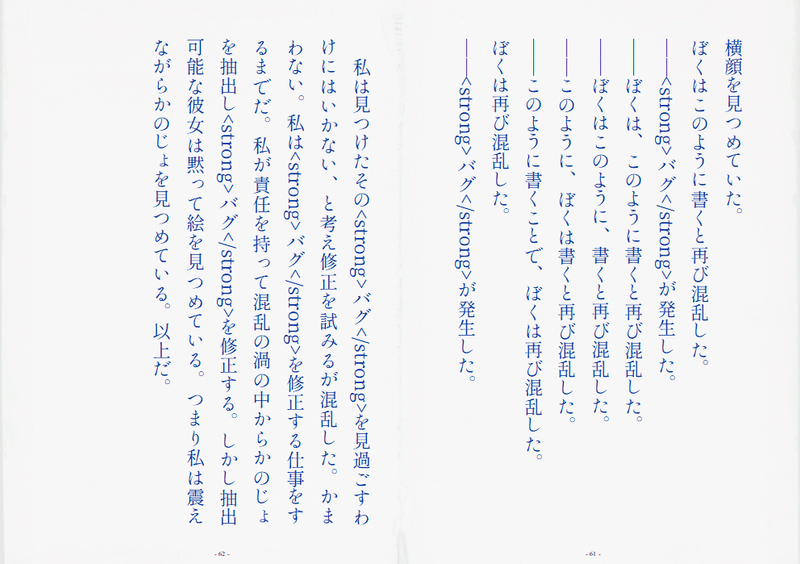 横顔を見つめていた。
ぼくはこのように書くと再び混乱した。
――<strong>バグ</strong>が発生した。
――ぼくは、このように書くと再び混乱した。
――ぼくはこのように、書くと再び混乱した。
――このように、ぼくは書くと再び混乱した。
――このように書くことで、ぼくは再び混乱した。
ぼくは再び混乱した。
――<strong>バグ</strong>が発生した。
- 61 -
私は見つけたその<strong>バグ</strong>を見過ごすわ
けにはいかない、と考え修正を試みるが混乱した。かま
わない。私は<strong>バグ</strong>を修正する仕事をす
るまでだ。私が責任を持って混乱の渦の中からかのじょ
を抽出し<strong>バグ</strong>を修正する。しかし抽出
可能な彼女は黙って絵を見つめている。つまり私は震え
ながらかのじょを見つめている。以上だ。
- 62 -